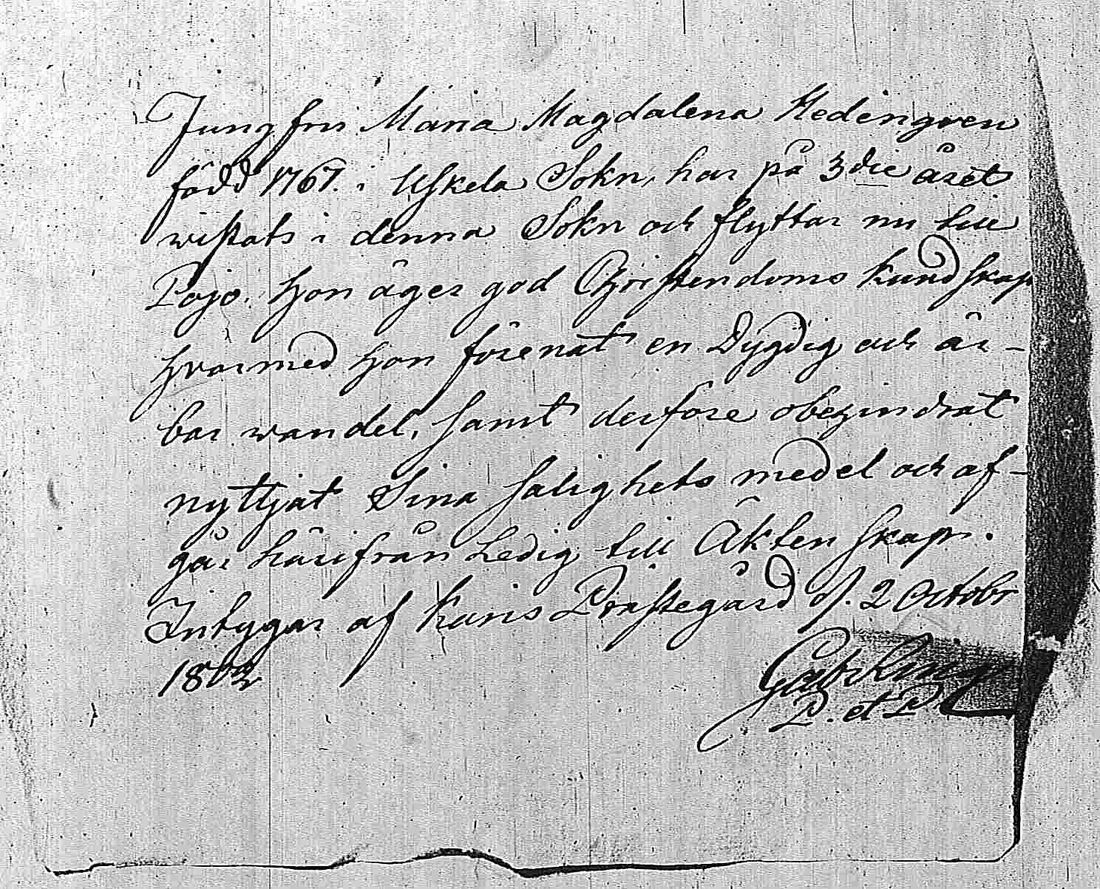 Jungfru Maria Magdalena Hedengren
född 1767. i Uskela Sokn, har på 3die året
wistats i denna Sokn och flyttar nu till
Pojo. Hon äger god Christendoms kundskap
hvarmed hon förenat en Dygdig och är-
bar wandel, samt derföre obehindrat
nyttjat Sina salighets medel och af-
går härifrån Ledig till Äkten skap.
Intygar af Karis Prästegård d. 2 Octobr
1802
P. et P.